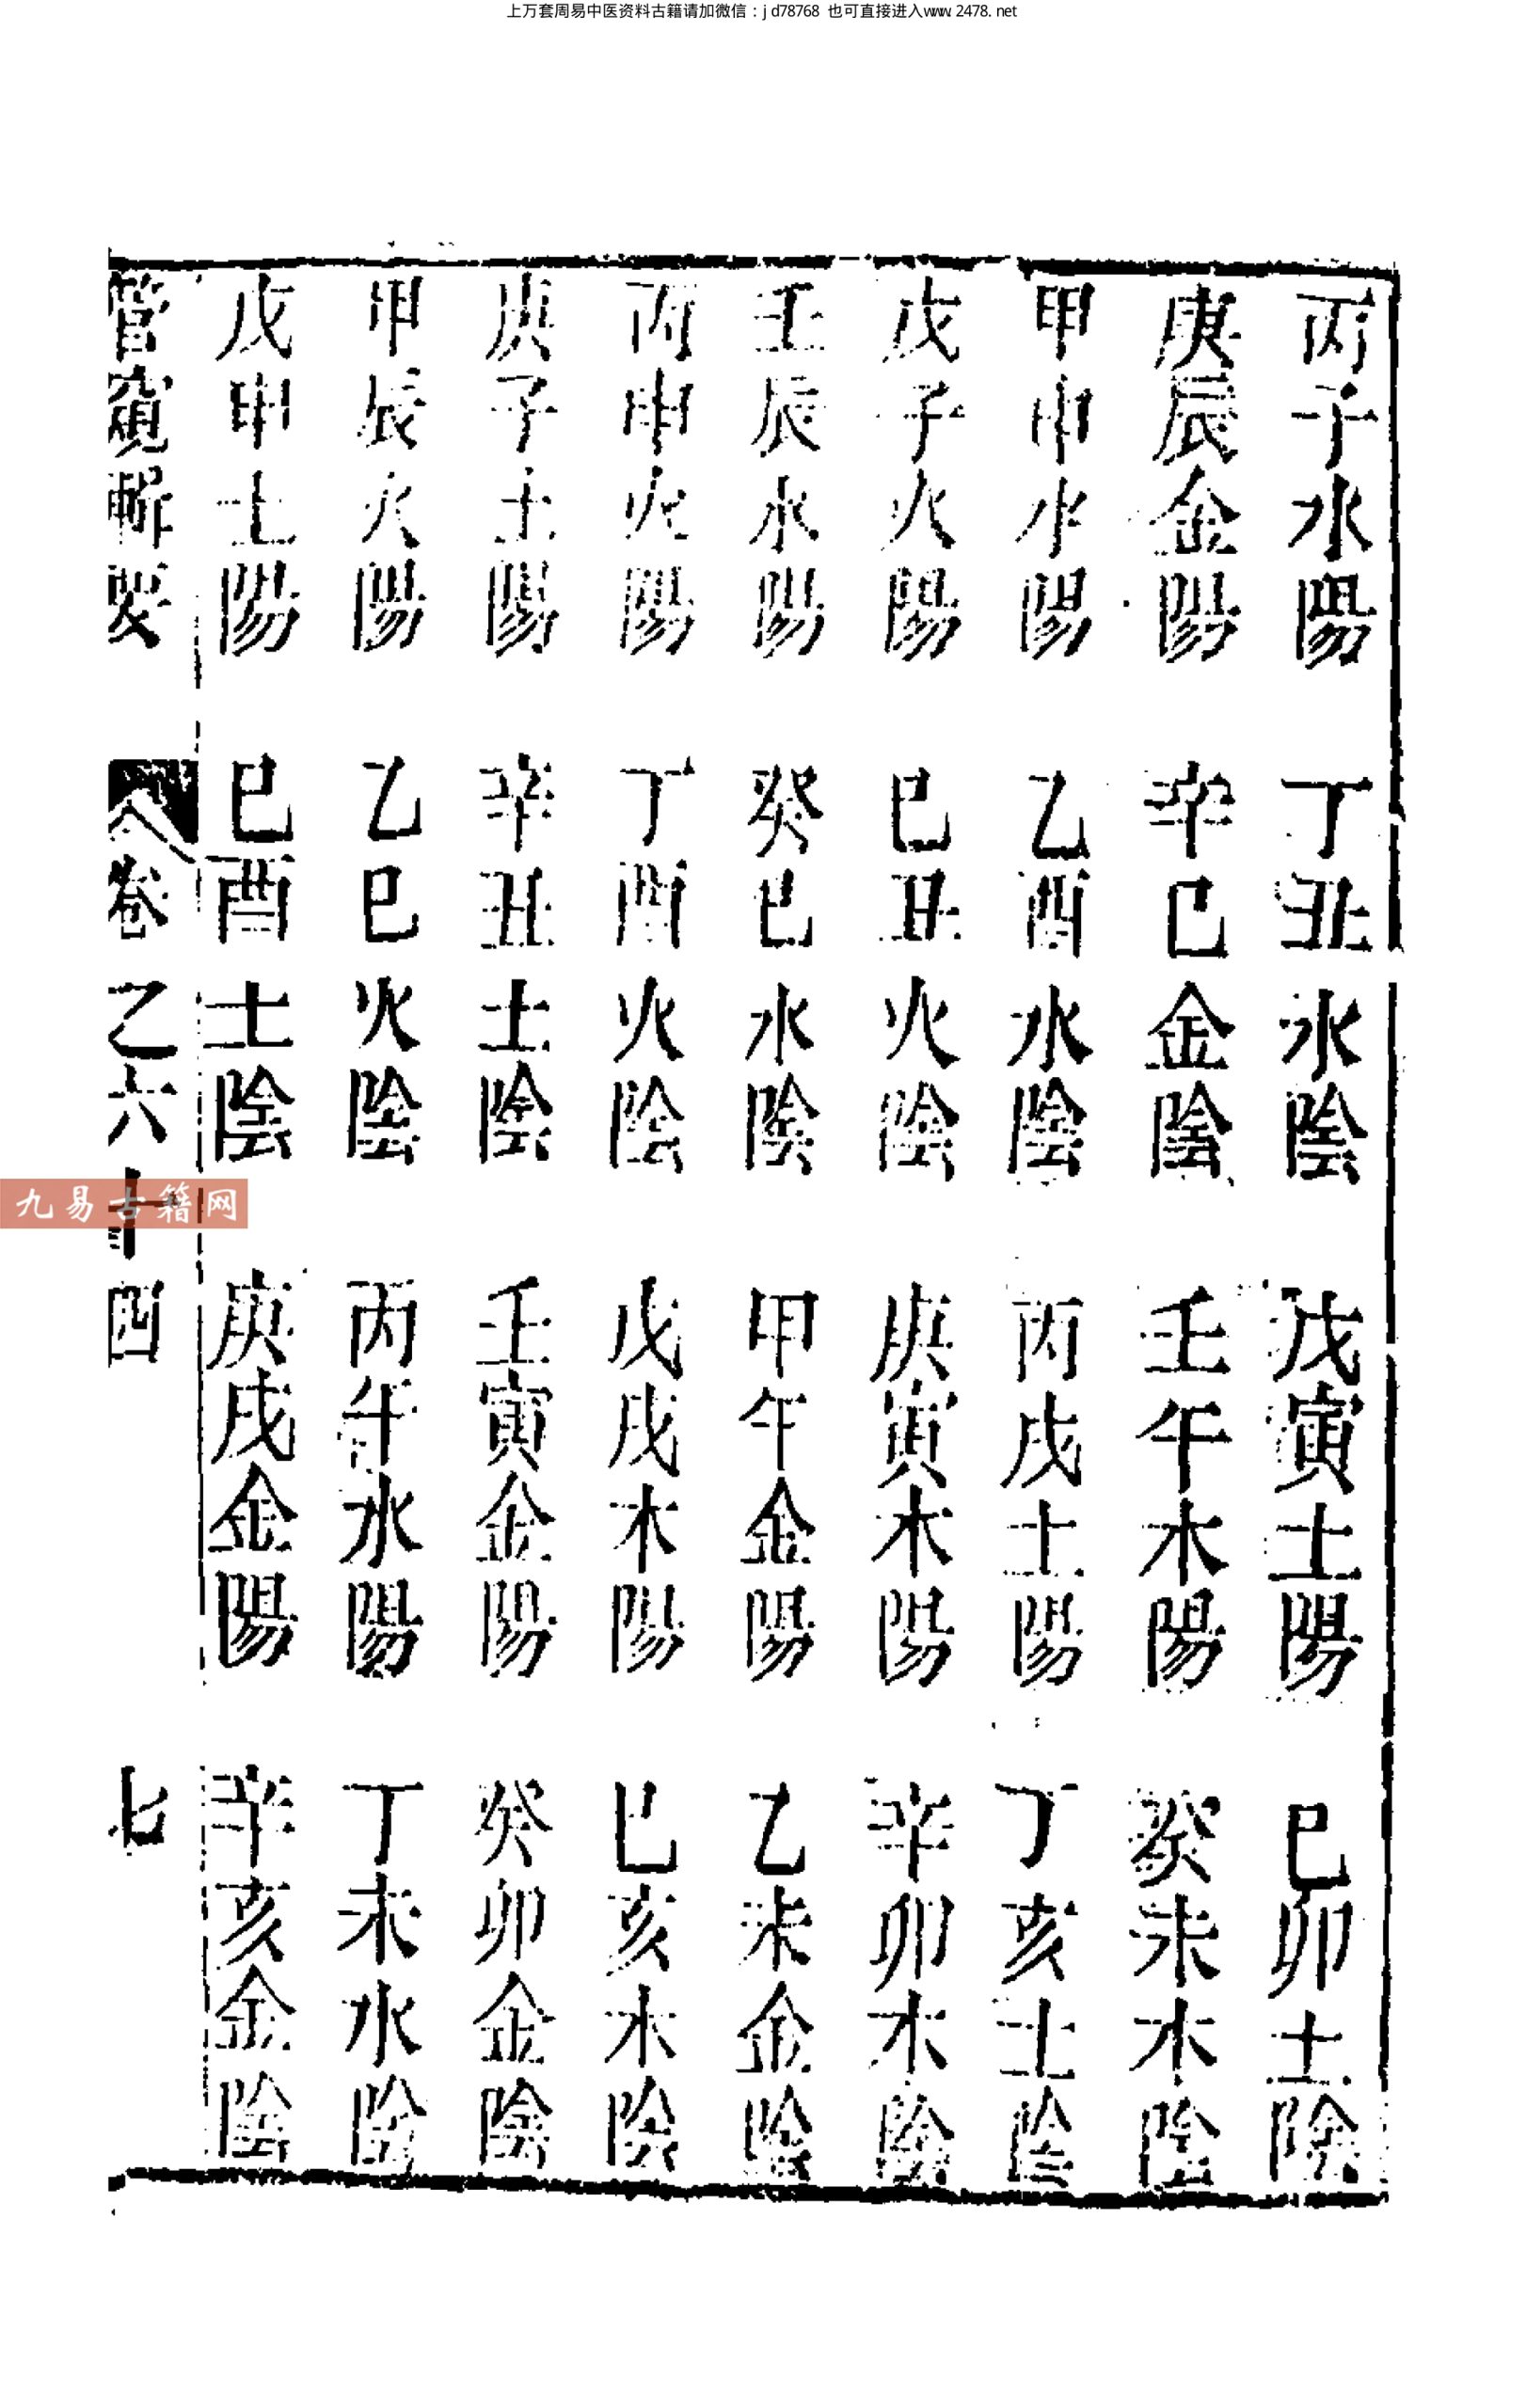 上万套周易中医资料古籍请加微信：jd78768 也可直接进入www.2478.net
丙子水陽 丁丑水陰 戊寅土陽 巳卯土陰
庚辰金陽 辛巳金陰 壬午木陽 癸未木陰
甲申水陽 乙酉水陰 丙戌土陽 丁亥土陰
戊子火陽 巳丑火陰 庚寅木陽 辛卯木陰
壬辰水陽 癸巳水陰 甲午金陽 乙未金陰
丙申火陽 丁酉火陰 戊戌木陽 巳亥木陰
庚子土陽 辛丑土陰 壬寅金陽 癸卯金陰
甲辰火陽 乙巳火陰 丙午水陽 丁未水陰
戊申土陽 巳酉土陰 庚戌金陽 辛亥金陰
管窺輯要 卷之六十四 七
九易古籍网